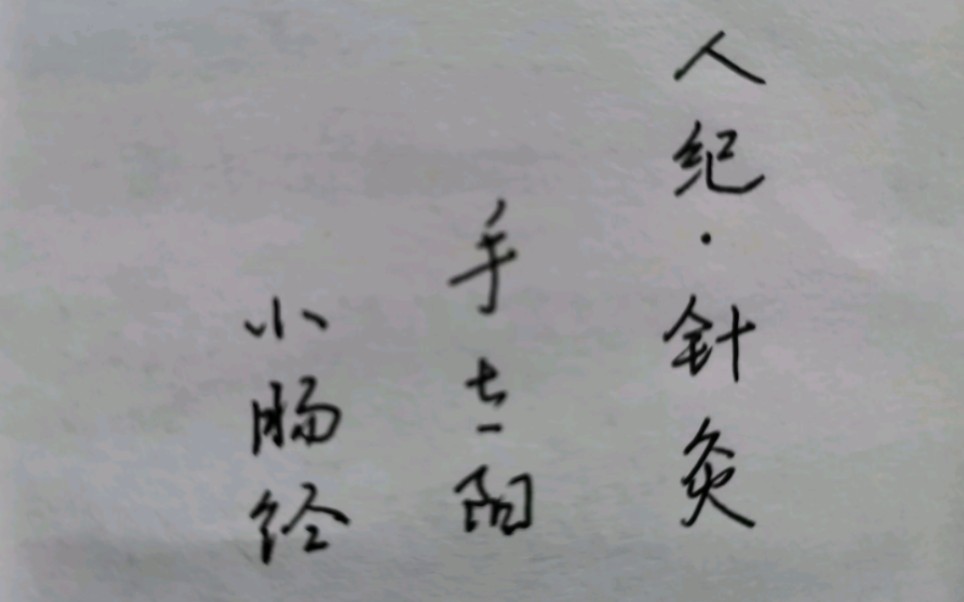 人纪·针灸
手太阳
小肠经